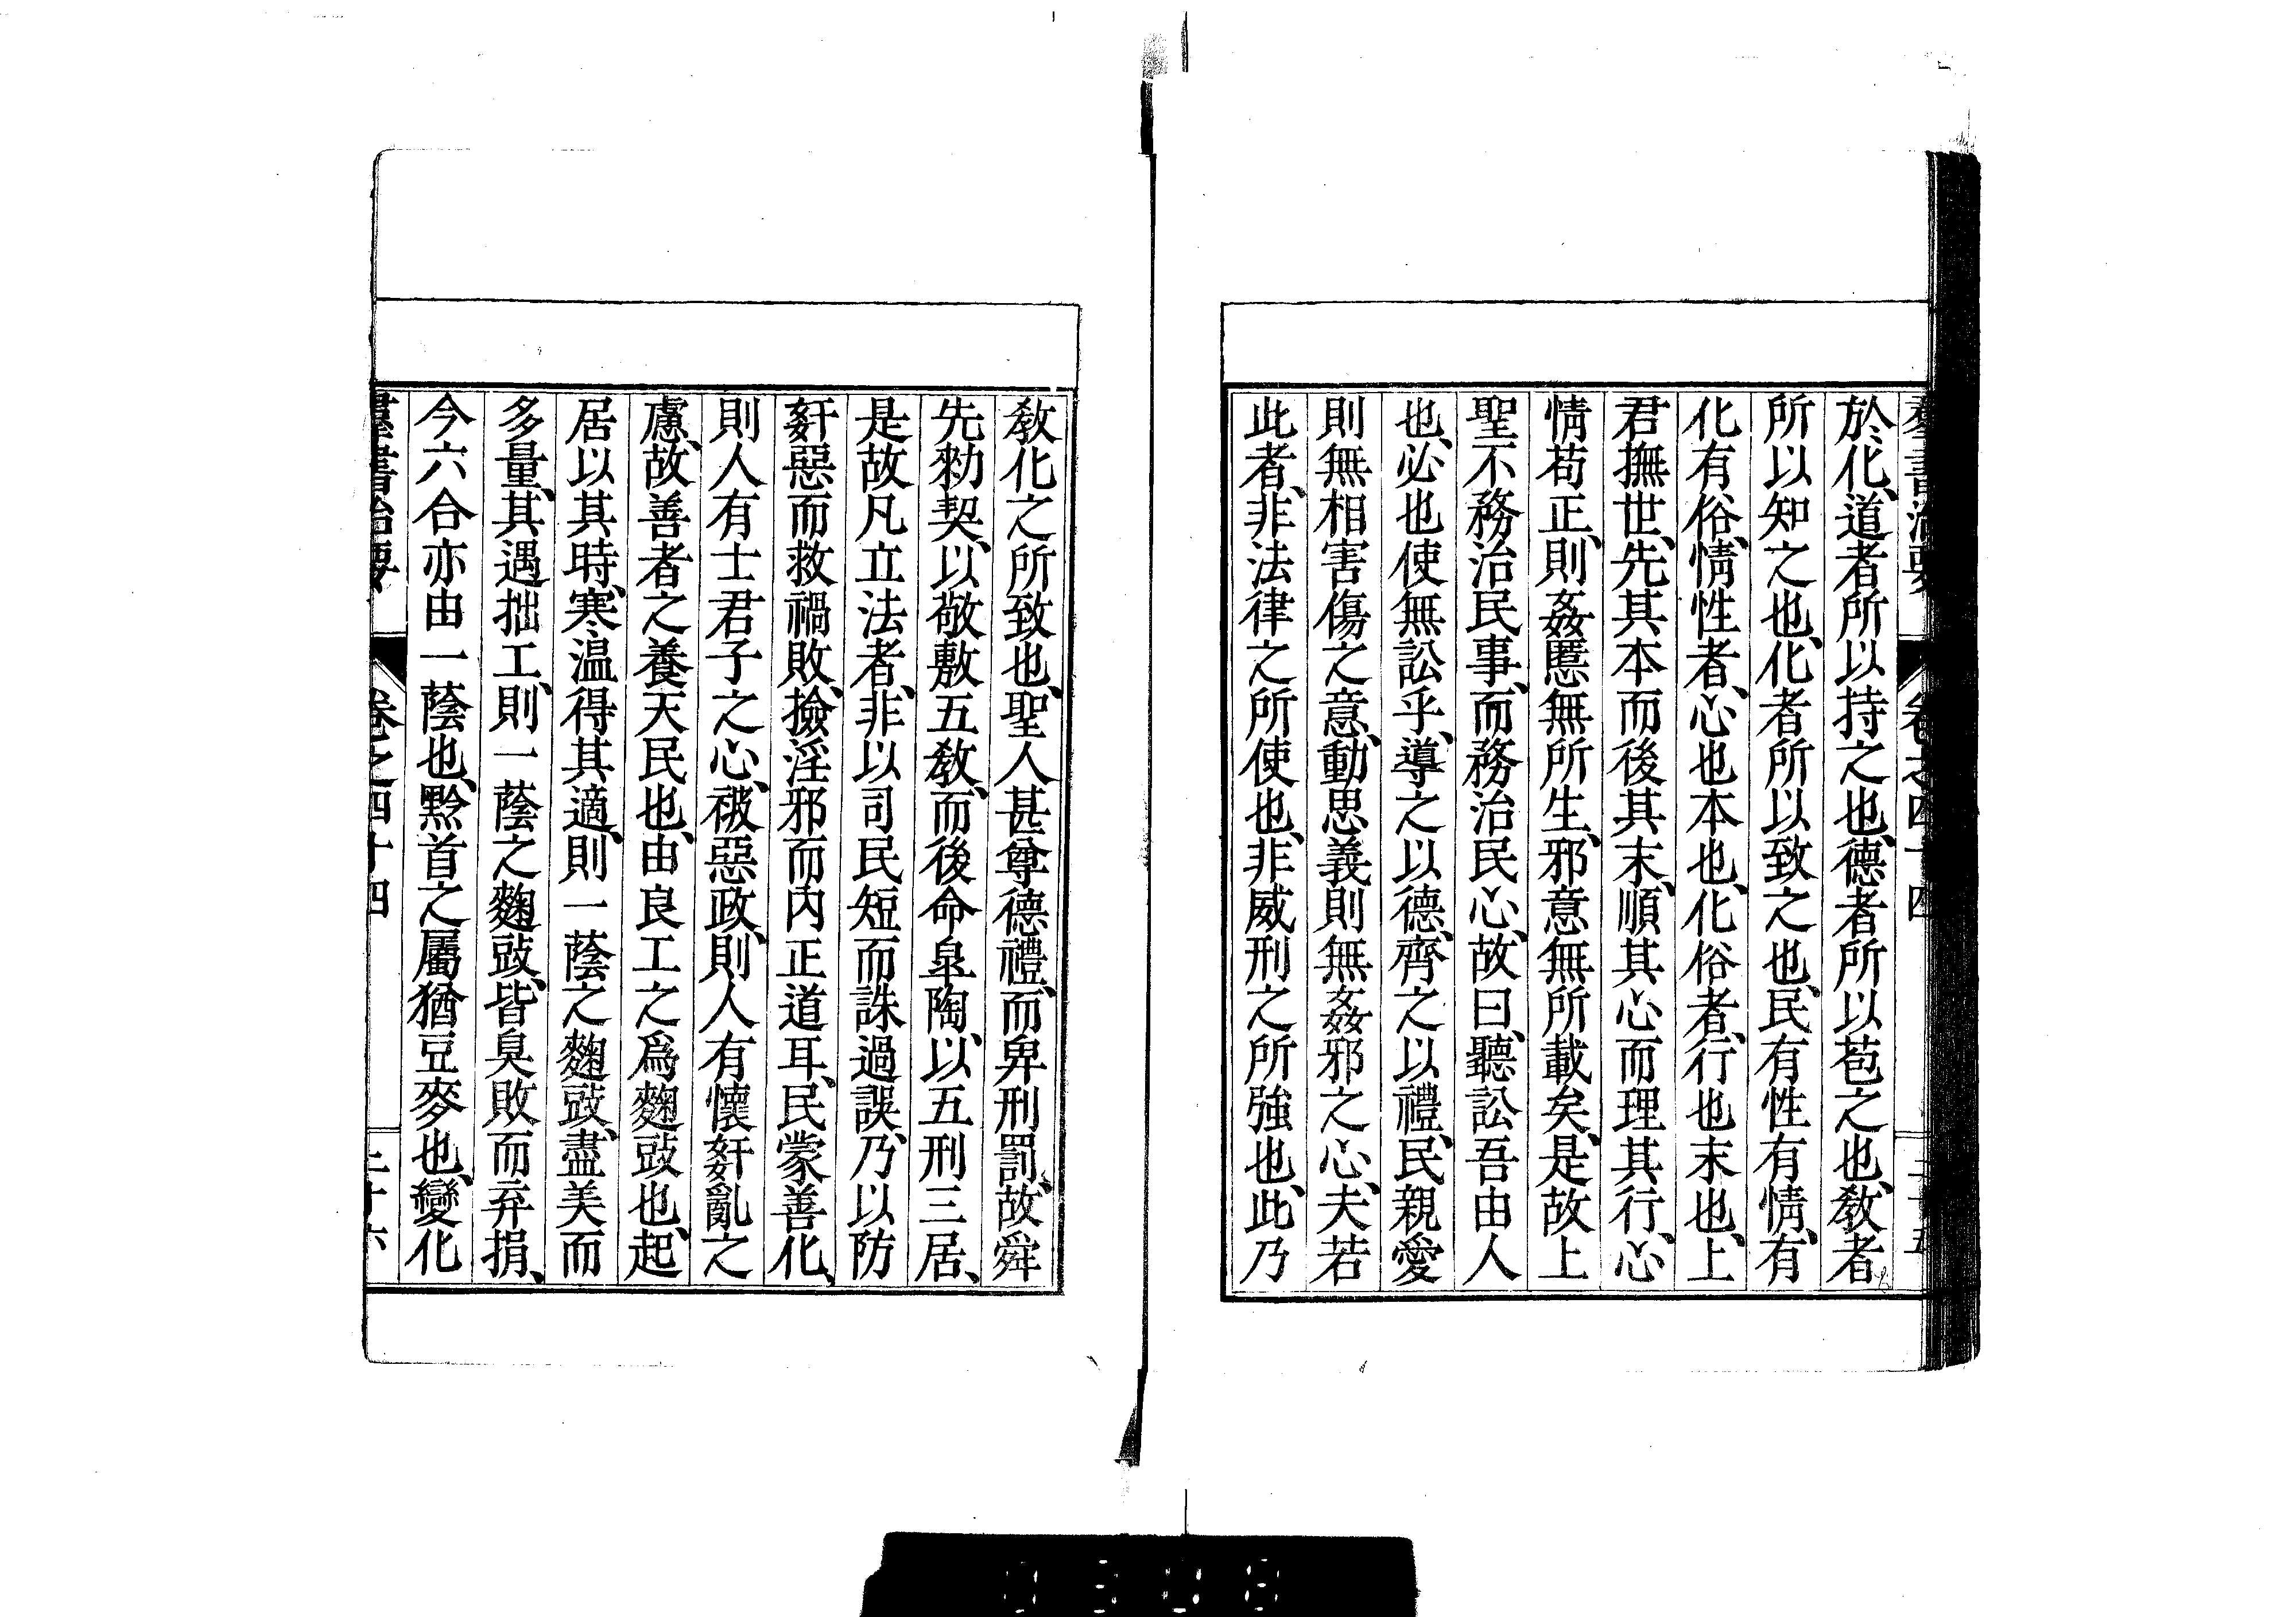 羣書治要 卷之四十四 二十五
於化、道者所以持之也、德者所以苞之也、敎者
所以知之也、化者所以致之也、民有性有情、有
化有俗、情性者、心也本也、化俗者、行也末也、上
君撫世、先其本而後其末、順其心而理其行、心
情苟正、則姦慝無所生、邪意無所載矣、是故上
聖不務治民事、而務治民心、故曰、聽訟吾由人
也、必也使無訟乎、導之以德、齊之以禮、民親愛
則無相害傷之意、動思義則無姦邪之心、夫若
此者、非法律之所使也、非威刑之所強也、此乃
敎化之所致也、聖人甚尊德禮、而卑刑罰、故舜
先勑契、以敬敷五敎、而後命皐陶、以五刑三居、
是故凡立法者、非以司民短而誅過誤、乃以防
姧惡而救禍敗、撿淫邪而內正道耳、民蒙善化、
則人有士君子之心、被惡政、則人有懷姧亂之
慮、故善者之養天民也、由良工之爲麴豉也、起
居以其時、寒溫得其適、則一蔭之麴豉、盡美而
多量、其遇拙工、則一蔭之麴豉、皆臭敗而弃捐、
今六合亦由一蔭也、黔首之屬猶豆麥也、變化
羣書治要 卷之四十四 二十六
0308